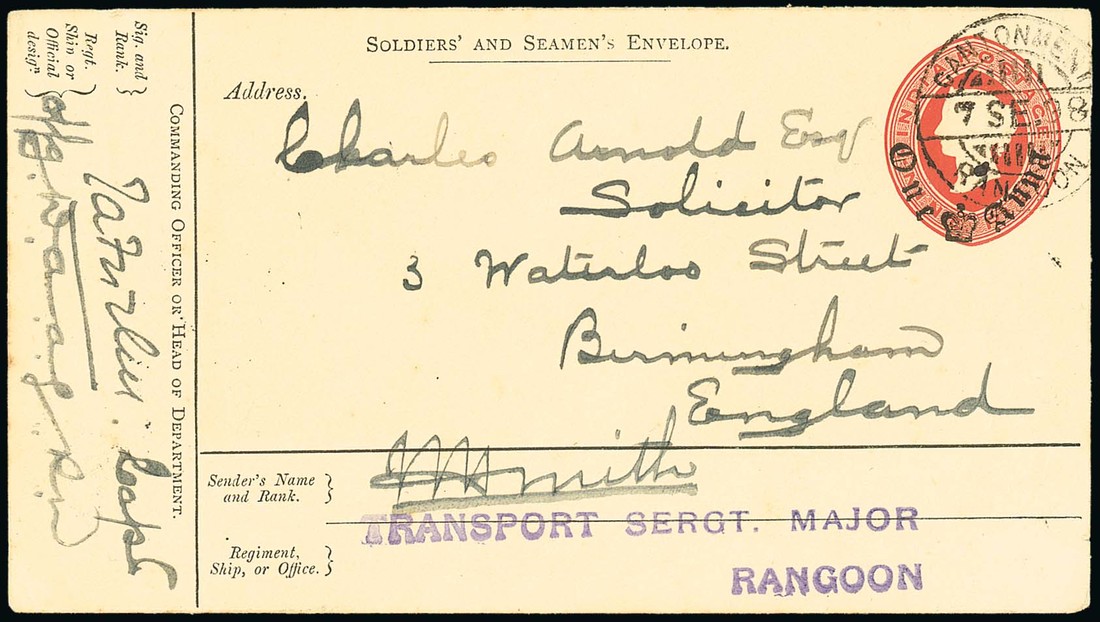 SOLDIERS' AND SEAMEN'S ENVELOPE.
Address.
Charles Arnold Esq
Solicitor
3 Waterloo Street
Birmingham
England
Sender's Name
and Rank.
Smith
TRANSPORT SERGT. MAJOR
Regiment,
Ship, or Office.
RANGOON
COMMANDING OFFICER OR HEAD OF DEPARTMENT.
Sig. and
Rank.
Capt
Regt.
Ship or
Official
desigⁿ.
INDIA POSTAGE
One Anna
CANTONMENT
7 SE
RANGOON